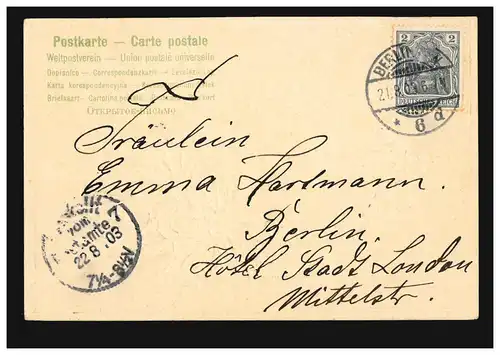 Postkarte — Carte postale
Weltpostverein — Union postale universelle
Dopisnice — Correspondenzkarte —
Karta korespondencyjna —
Briefkaart — Cartolina
ОТКРЫТОЕ ПИСЬМО
2 2
DEUTSCHES REICH
BERLIN
21.8.03
* 6 d
Fräulein
Emma Hartmann.
Berlin,
Hôtel Stadt London
Mittelstr.
Bestellt
vom
Postamte 7
22.8.03
7¼-8½V